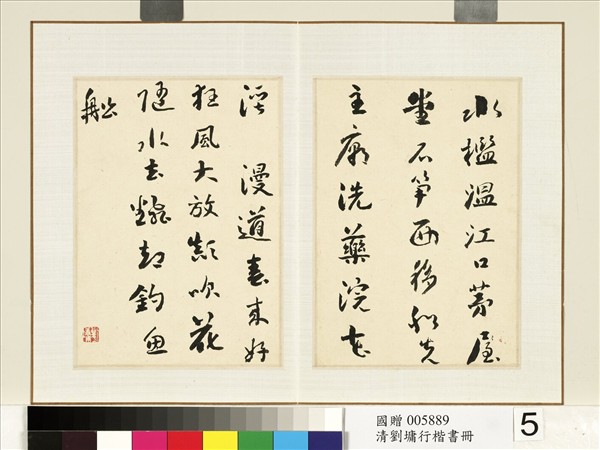 水檻溫江口茅屋
堂石筍西移船先
主廟洗藥浣花
溪 漫道春來好
狂風大放顛吹花
隨水去翻却釣魚
船
國贈 005889
清劉墉行楷書冊
5